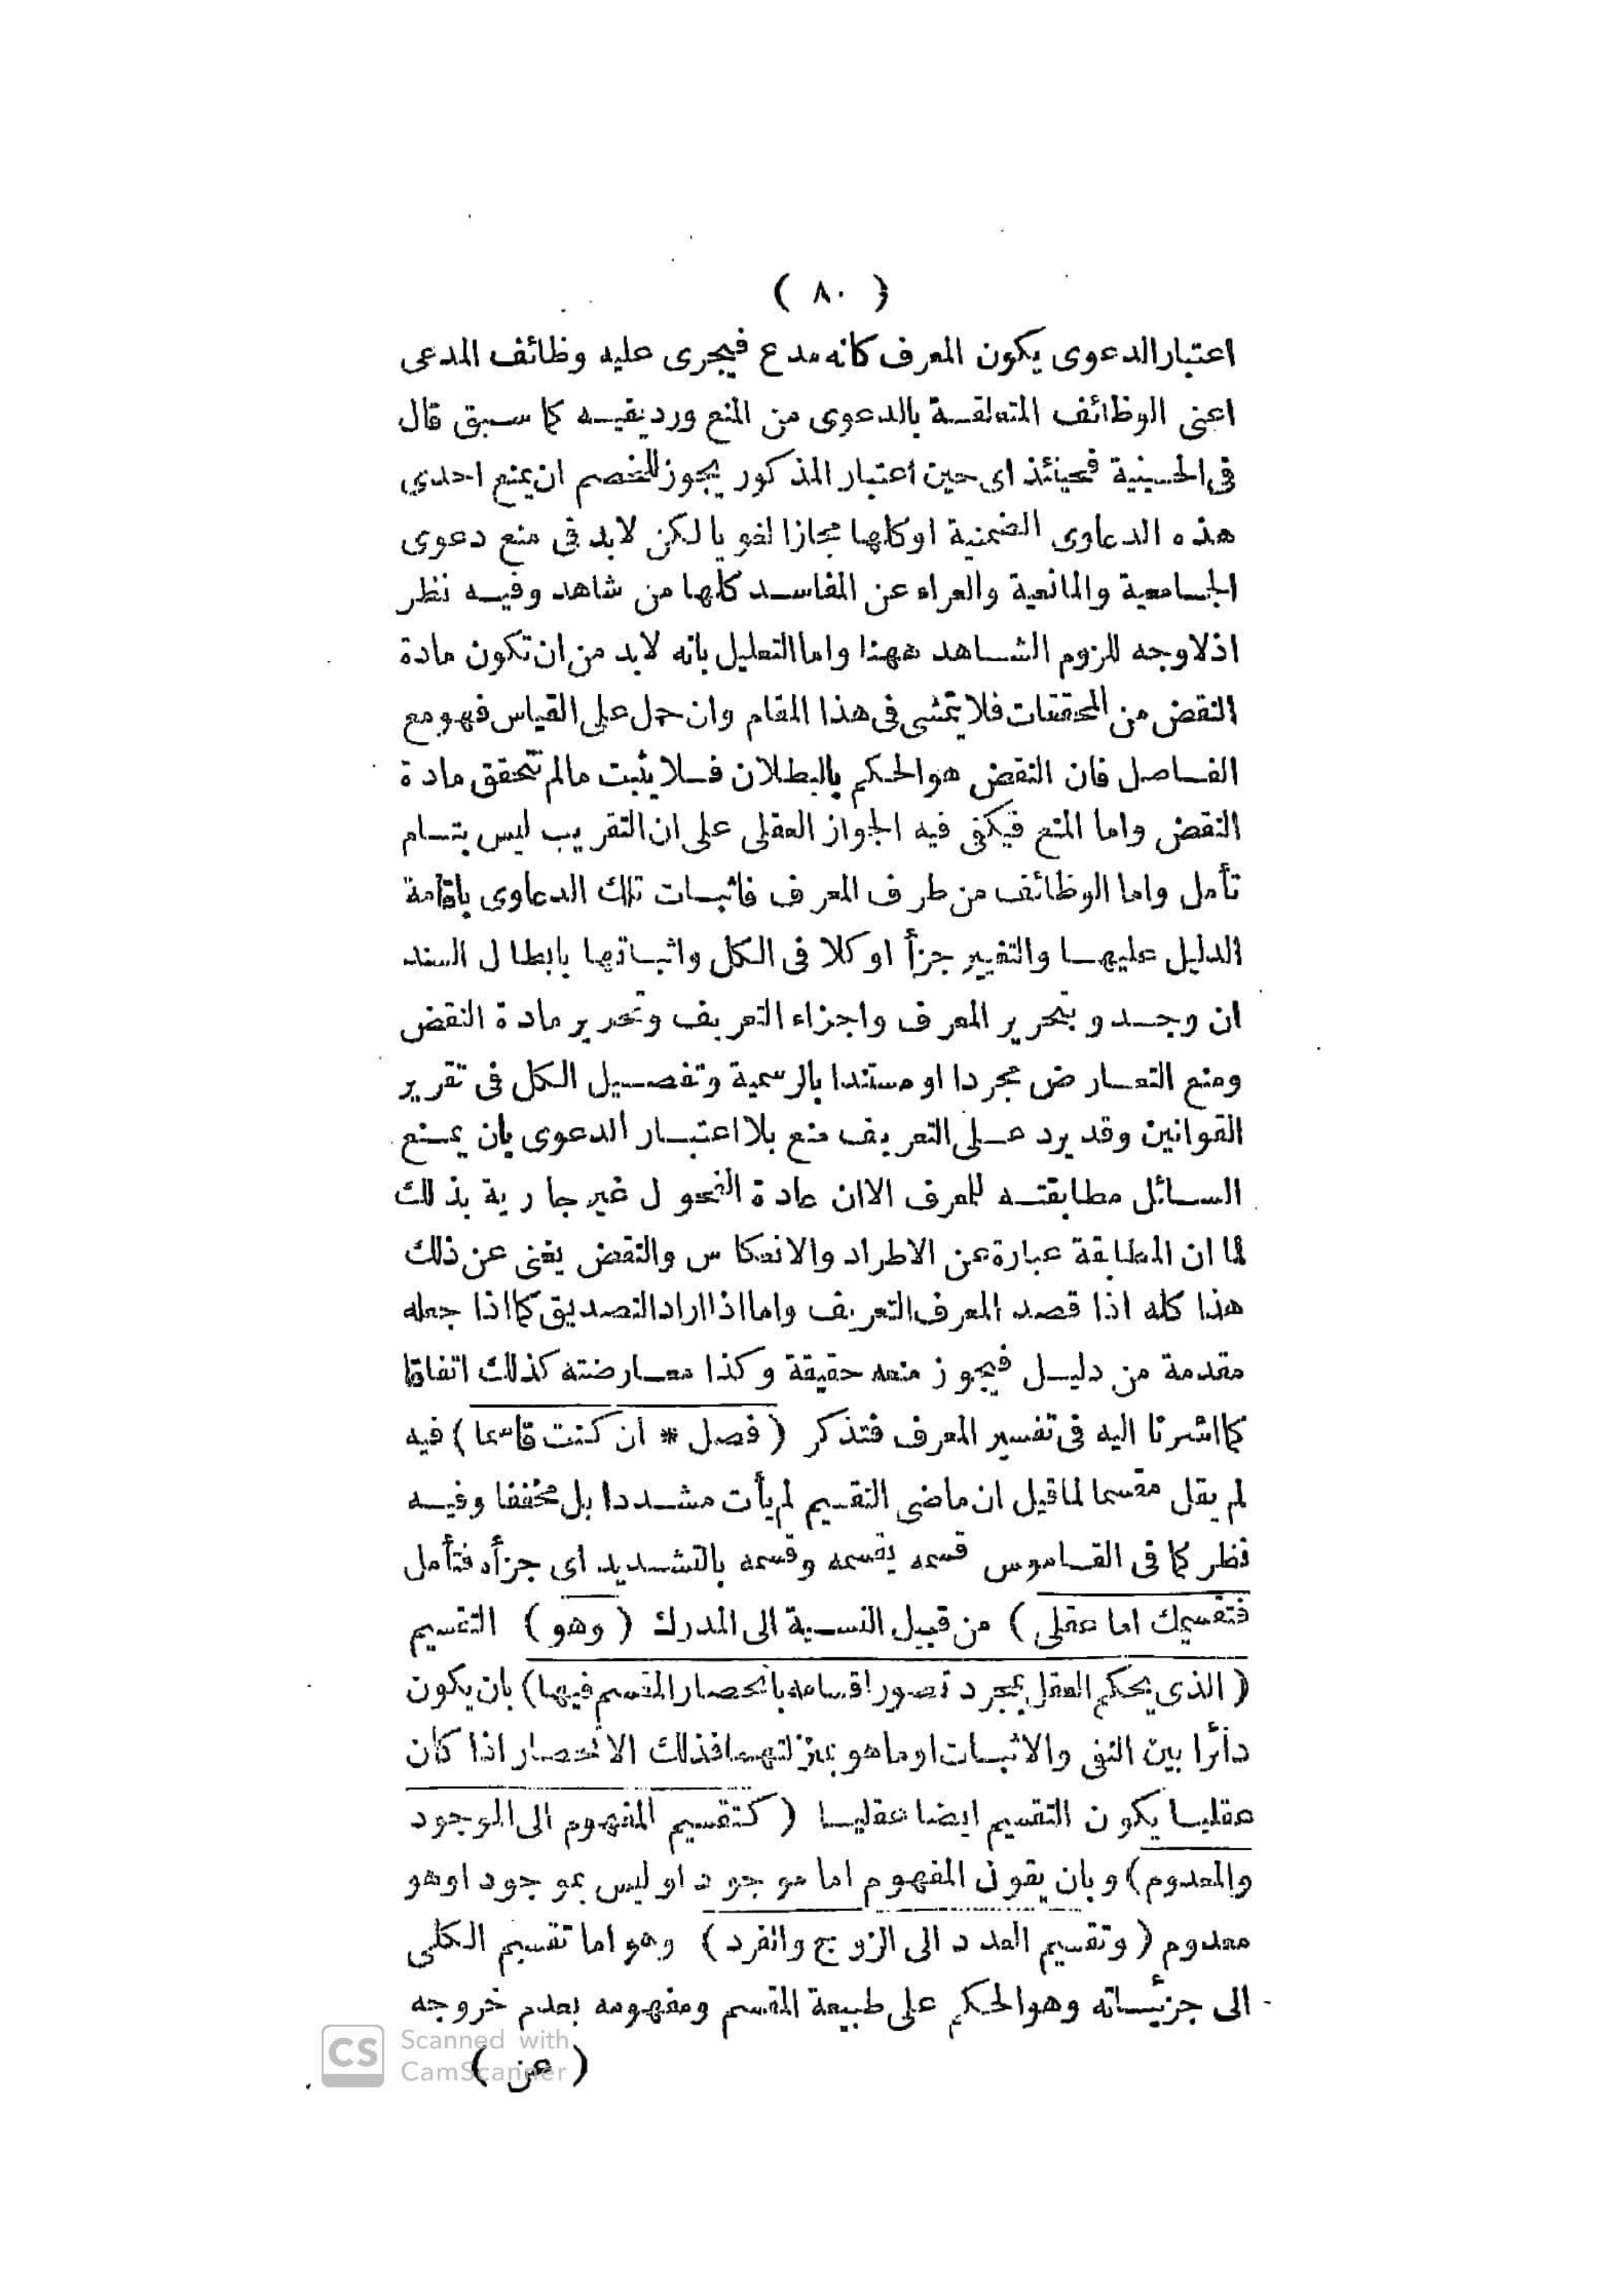 ( ٨٠ )
اعتبار الدعوى يكون المعرف كانه مدع فيجرى عليه وظائف المدعى
اعنى الوظائف المتعلقة بالدعوى من المنع ورديفيه كما سبق قال
فى الحسينية فحينئذ اى حين اعتبار المذكور يجوز للخصم ان يمنع احدى
هذه الدعاوى الضمنية او كلها مجازا لغويا لكن لا بد فى منع دعوى
الجامعية والمانعية والعراء عن المفاسد كلها من شاهد وفيه نظر
اذلا وجه للزوم الشاهد ههنا واما التعليل بانه لابد من ان تكون مادة
النقض من المحققات فلا يتمشى فى هذا المقام وان حمل على القياس فهو مع
الفاصل فان النقض هو الحكم بالبطلان فلا يثبت مالم تتحقق مادة
النقض واما المنع فيكفى فيه الجواز العقلى على ان التقريب ليس بتام
تأمل واما الوظائف من طرف المعرف فاثبات تلك الدعاوى باقامة
الدليل عليها والتغيير جزأ او كلا فى الكل واثباتها بابطال السند
ان وجد وبتحرير المعرف واجزاء التعريف وتحرير مادة النقض
ومنع التعارض مجردا او مستندا بالرسمية وتفصيل الكل فى تقرير
القوانين وقد يرد على التعريف منع بلا اعتبار الدعوى بان يمنع
السائل مطابقته للمعرف الا ان عادة الفحول غير جارية بذلك
لما ان المطابقة عبارة عن الاطراد والانعكاس والنقض يغنى عن ذلك
هذا كله اذا قصد المعرف التعريف واما اذا اراد التصديق كما اذا جعله
مقدمة من دليل فيجوز منعه حقيقة وكذا معارضته كذلك اتفاقا
كما اشرنا اليه فى تفسير المعرف فتذكر ( فصل * ان كنت قاسما ) فيه
لم يقل مقسما لما قيل ان ماضى التقسيم لم يأت مشددا بل مخففا وفيه
نظر كما فى القاموس قسمه يقسمه وقسمه بالتشديد اى جزأه فتأمل
فتقسيمك اما عقلى ) من قبيل النسبة الى المدرك ( وهو ) التقسيم
( الذى يحكم العقل بمجرد تصور اقسامه بانحصار المقسم فيها ) بان يكون
دائرا بين النفى والاثبات او ما هو بمنزلتهما فذلك الانحصار اذا كان
عقليا يكون التقسيم ايضا عقليا ( كتقسيم المفهوم الى الموجود
والمعدوم ) وبان يقول المفهوم اما موجود او ليس بموجود او هو
معدوم ( وتقسيم العدد الى الزوج والفرد ) وهو اما تقسيم الكلى
الى جزئياته وهو الحكم على طبيعة المقسم ومفهومه بعدم خروجه
( عن )
CS Scanned with
CamScanner